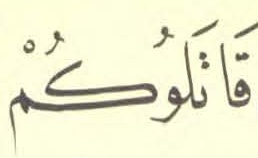 قَاتَلُوكُمْ